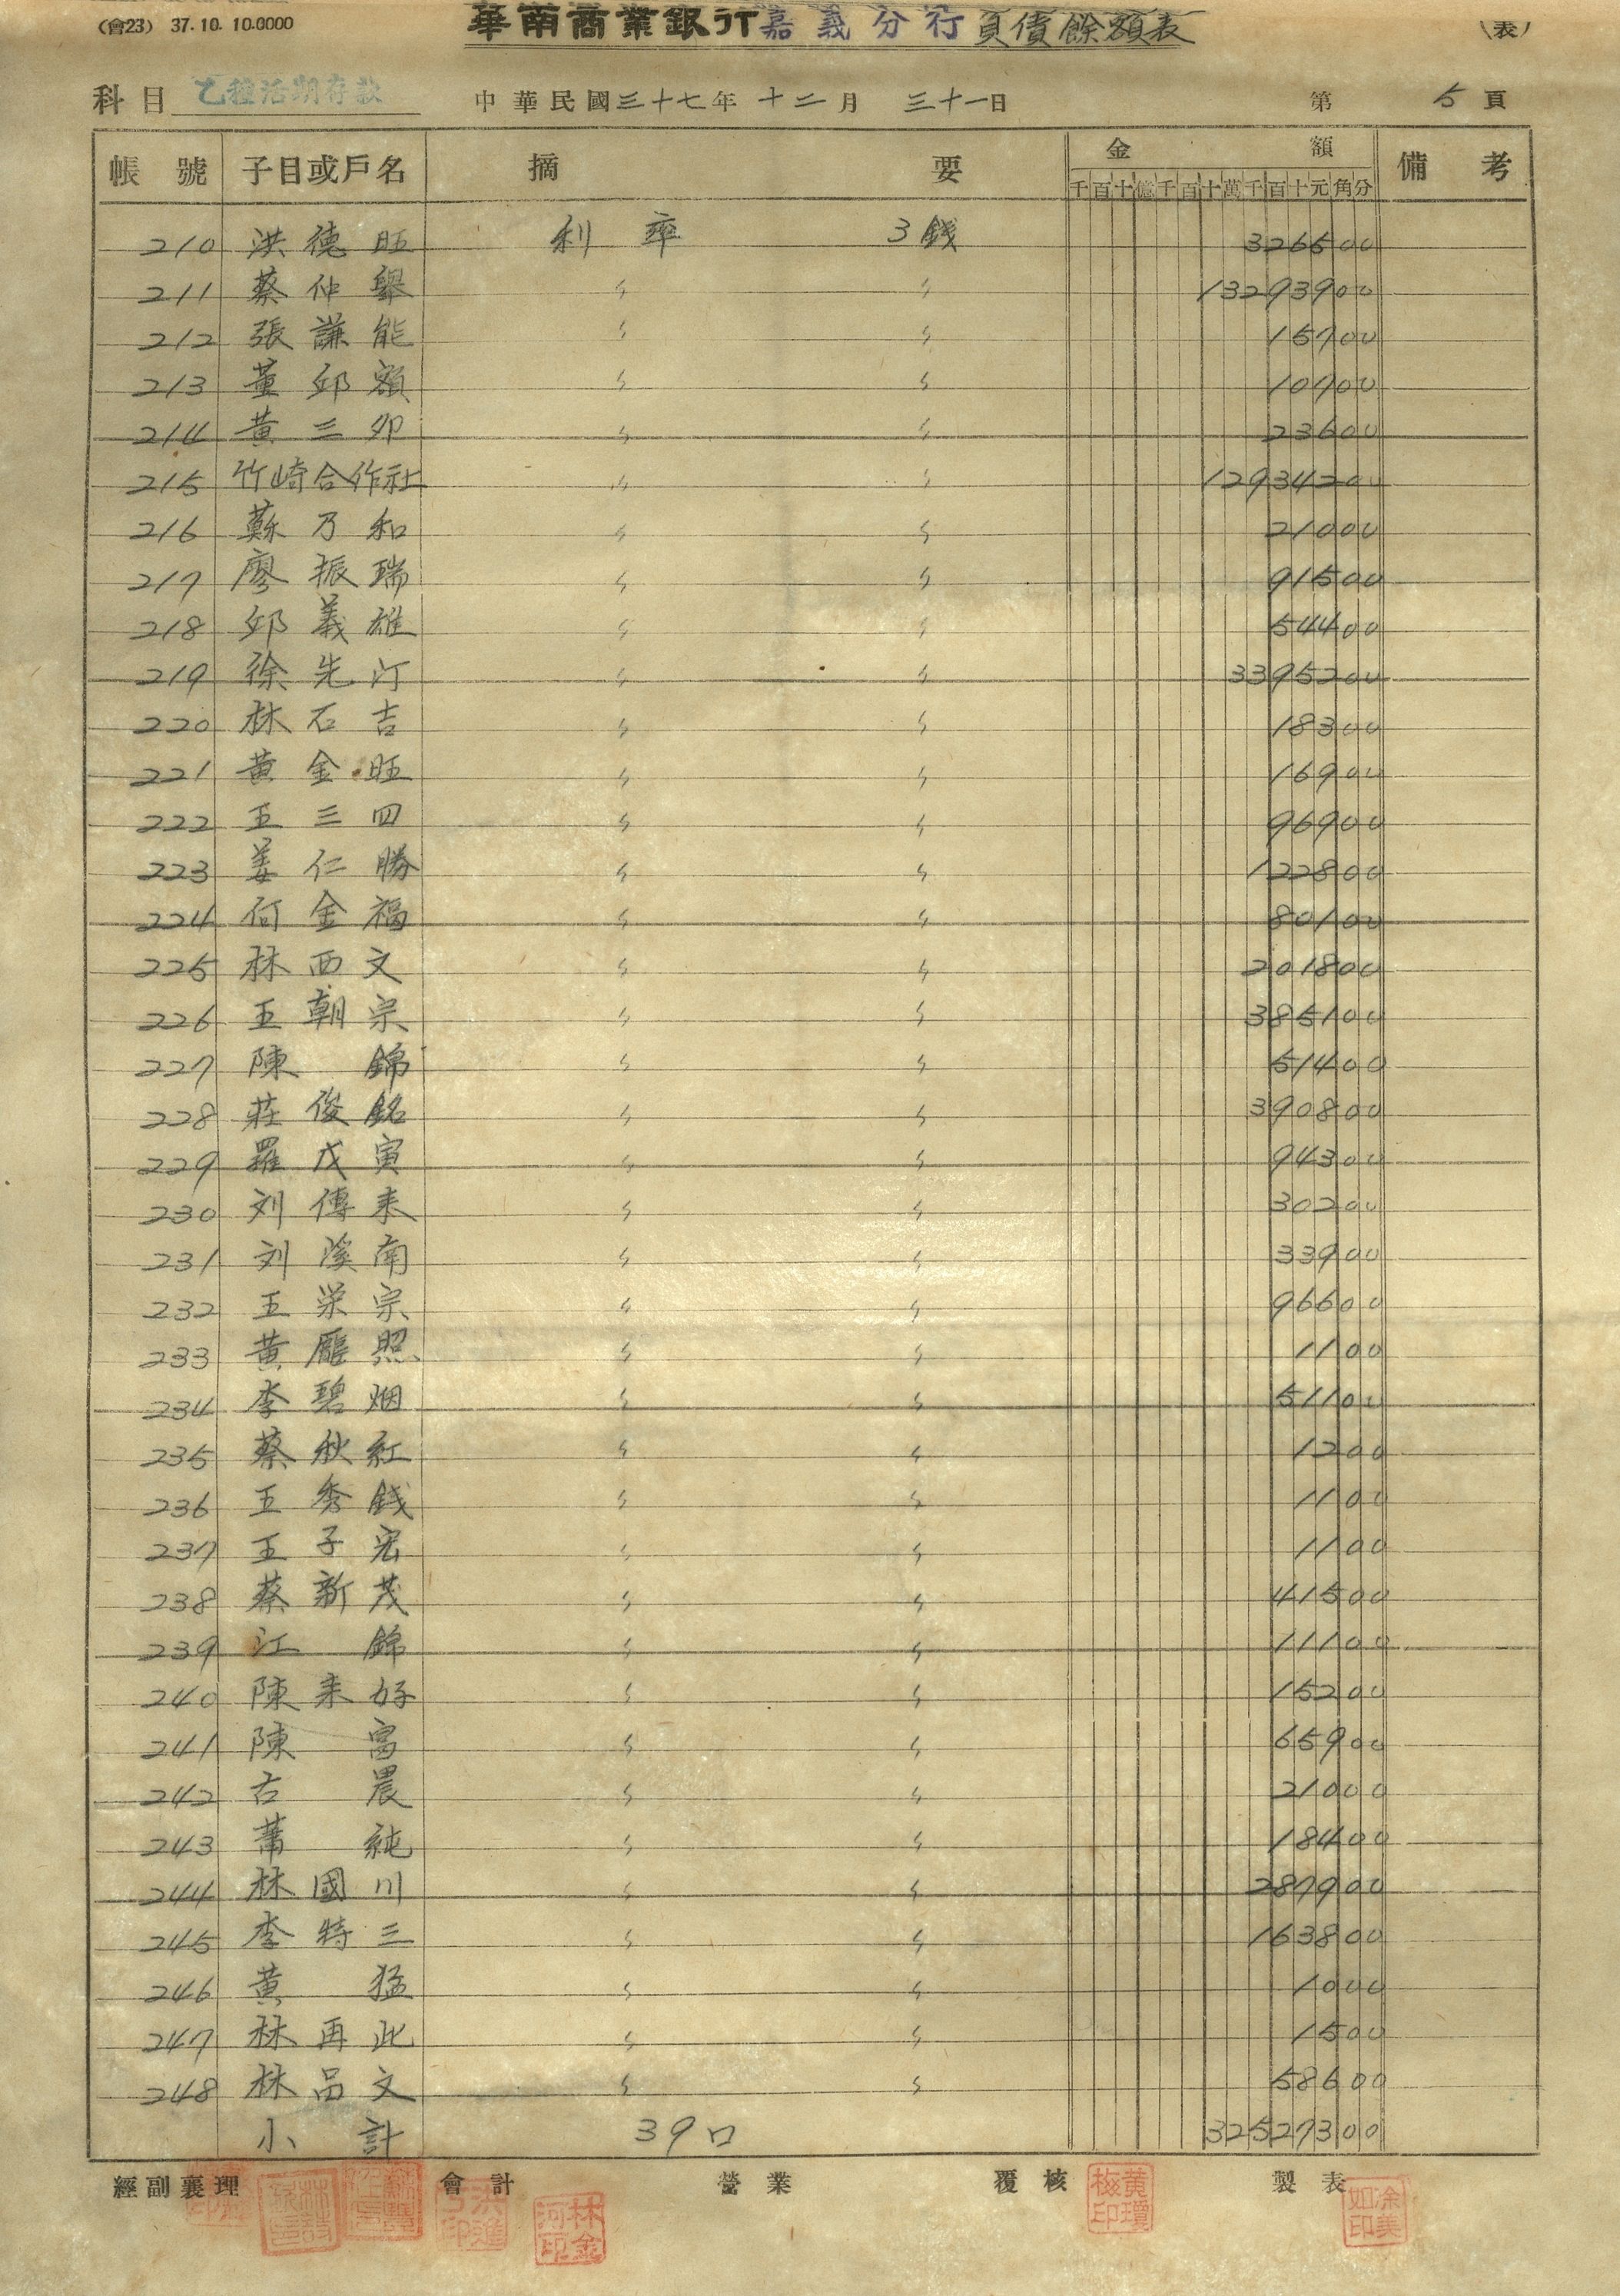 (會23) 37. 10. 10.0000
華南商業銀行嘉義分行負債餘額表
(表)
科目 乙種活期存款 中華民國三十七年十二月三十一日 第5頁
帳號 子目或戶名 摘要 金額 備考
千百十億千百十萬千百十元角分
210 洪德旺 利率 3錢 326600
211 蔡仲舉 〃 〃 13293900
212 張謙能 〃 〃 15700
213 董邱額 〃 〃 10700
214 黃三卯 〃 〃 23600
215 竹崎合作社 〃 〃 12934200
216 蘇乃和 〃 〃 21000
217 廖振瑞 〃 〃 91500
218 邱義雄 〃 〃 54400
219 徐先汀 〃 〃 3395200
220 林石吉 〃 〃 18300
221 黃金旺 〃 〃 16900
222 王三四 〃 〃 96900
223 姜仁勝 〃 〃 122800
224 何金福 〃 〃 80100
225 林西文 〃 〃 201800
226 王朝宗 〃 〃 385100
227 陳錦 〃 〃 51400
228 莊俊銘 〃 〃 390800
229 羅戊寅 〃 〃 94300
230 刘傳来 〃 〃 30200
231 刘溪南 〃 〃 33900
232 王栄宗 〃 〃 96600
233 黃雁照 〃 〃 1100
234 李碧烟 〃 〃 51100
235 蔡秋紅 〃 〃 1200
236 王秀錢 〃 〃 1100
237 王子宏 〃 〃 1100
238 蔡新茂 〃 〃 41500
239 江錦 〃 〃 11100
240 陳来好 〃 〃 15200
241 陳富 〃 〃 65900
242 古晨 〃 〃 21000
243 蕭純 〃 〃 18400
244 林國川 〃 〃 287900
245 李特三 〃 〃 163800
246 黃猛 〃 〃 1000
247 林再此 〃 〃 1500
248 林品文 〃 〃 58600
小計 39口 32527300
經副襄理 會計 營業 覆核 製表
林金河印
黃瓊梅印
涂美如印